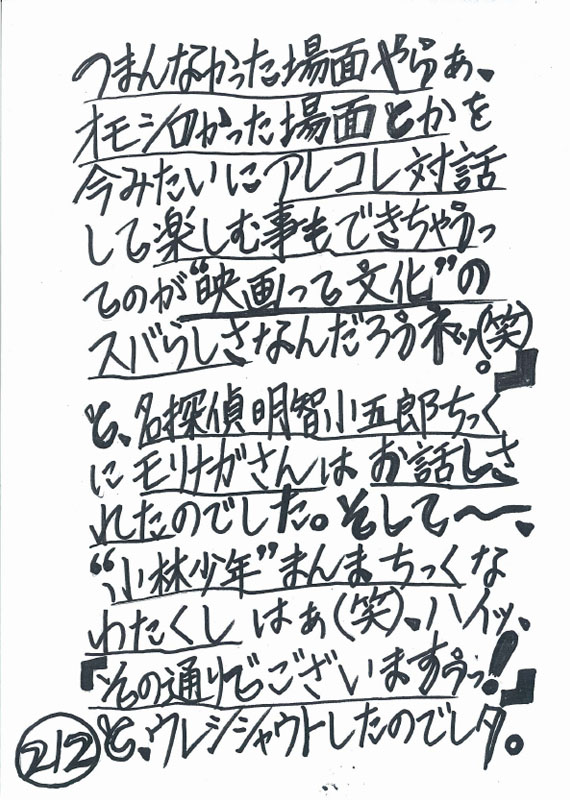 つまんなかった場面やらぁ、
オモシロかった場面とかを
今みたいにアレコレ対話
して楽しむ事もできちゃうっ
てのが“映画って文化”の
スバらしさなんだろうネッ(笑)。』
と、名探偵明智小五郎ちっく
にモリナガさんはお話しさ
れたのでした。そして〜、
“小林少年”まんまちっくな
わたくしはぁ(笑)、ハイッ、
『その通りでございますぅっ!』
と、ウレシシャウトしたのでしタ。
212